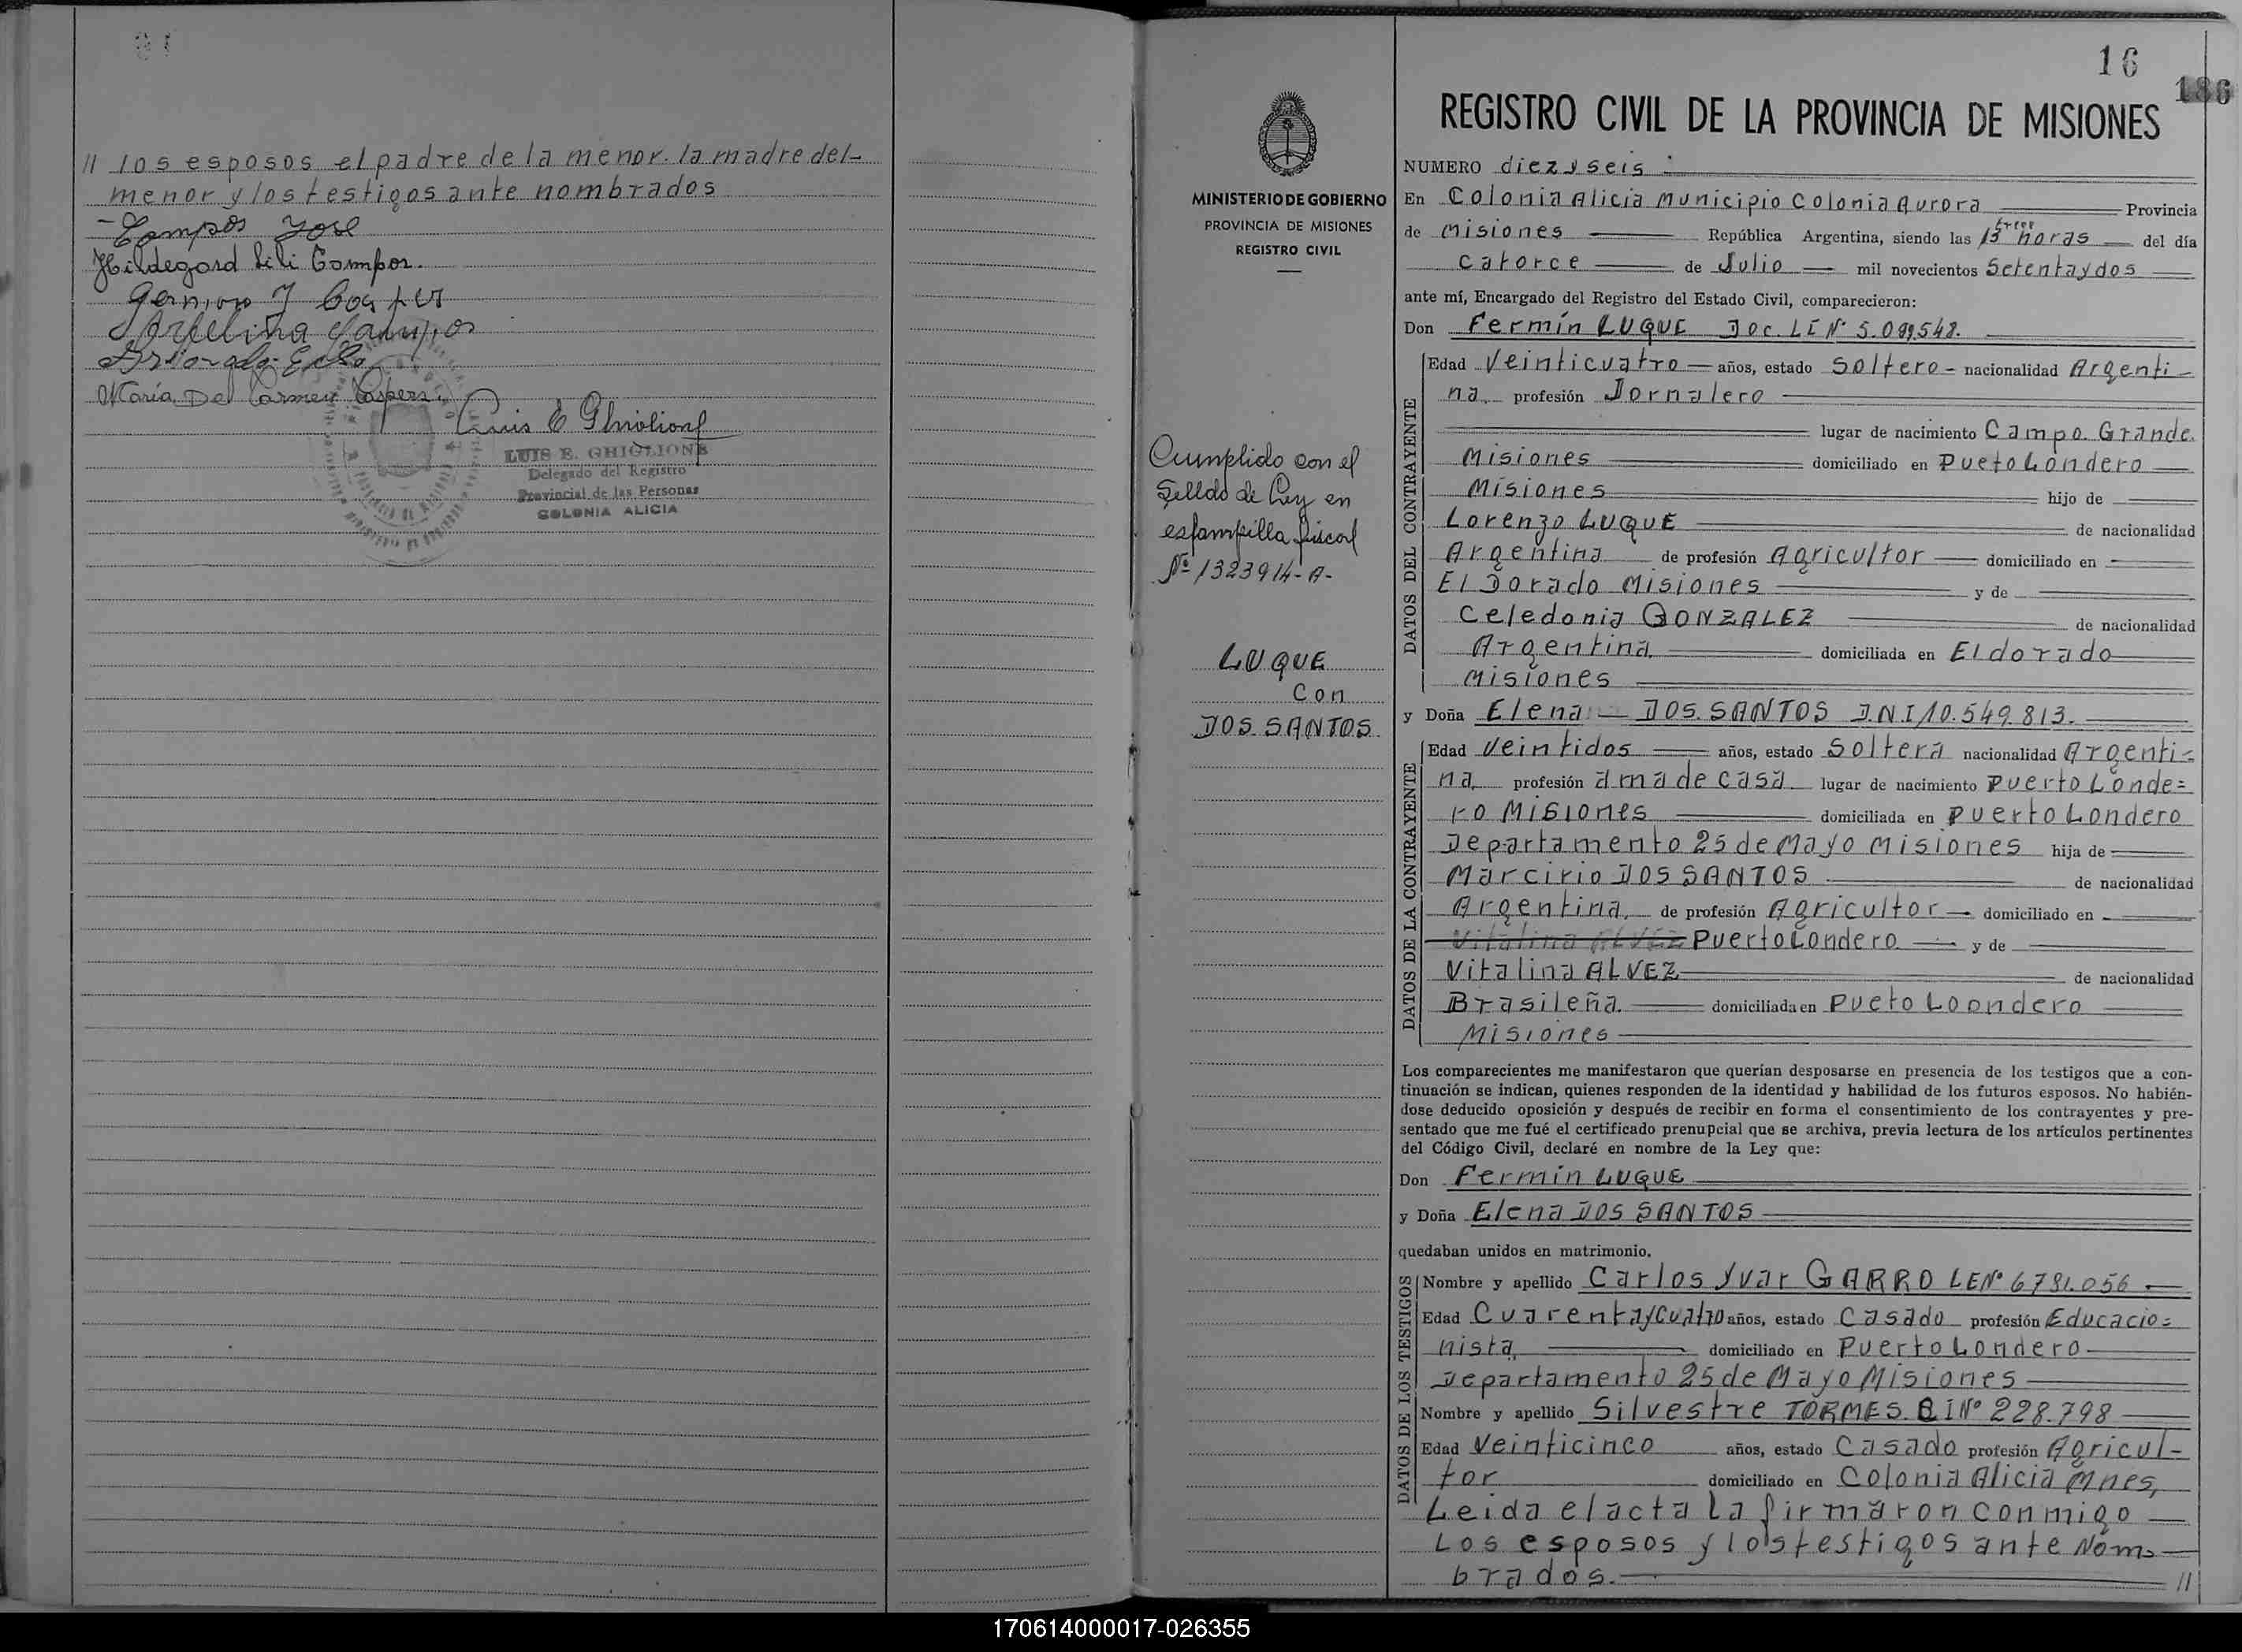 // los esposos el padre de la menor. la madre del-
menor y los testigos ante nombrados
- Campos José
Hildegard Lili Campos.
María Del Carmen Caspers
Luis E Ghiglione
LUIS E. GHIGLIONE
Delegado del Registro
Provincial de las Personas
COLONIA ALICIA
MINISTERIO DE GOBIERNO
PROVINCIA DE MISIONES
REGISTRO CIVIL
Cumplido con el
Sellado de Ley en
estampilla fiscal
Nº 1323914-A-
LUQUE
Con
DOS SANTOS.
16
186
REGISTRO CIVIL DE LA PROVINCIA DE MISIONES
NUMERO diez y seis
En Colonia Alicia Municipio Colonia Aurora Provincia
de Misiones República Argentina, siendo las 13 trece horas del día
catorce de Julio mil novecientos Setenta y dos
ante mí, Encargado del Registro del Estado Civil, comparecieron:
Don Fermín LUQUE Doc. LE Nº 5.099.548.
DATOS DEL CONTRAYENTE
Edad Veinticuatro años, estado Soltero - nacionalidad Argenti-
na. profesión Jornalero
lugar de nacimiento Campo Grande.
Misiones domiciliado en Pueto Londero
Misiones hijo de
Lorenzo LUQUE de nacionalidad
Argentina de profesión Agricultor domiciliado en
El Dorado Misiones y de
Celedonia GONZALEZ de nacionalidad
Argentina. domiciliada en Eldorado
Misiones
y Doña Elena DOS SANTOS D.N.I/10.549.813.
DATOS DE LA CONTRAYENTE
Edad Veintidos años, estado Soltera nacionalidad Argenti-
na. profesión ama de casa. lugar de nacimiento Puerto Londe=
ro Misiones domiciliada en Puerto Londero
Departamento 25 de Mayo Misiones hija de
Marcirio DOS SANTOS de nacionalidad
Argentina. de profesión Agricultor domiciliado en
Vitalina ALVEZ Puerto Londero y de
Vitalina ALVEZ de nacionalidad
Brasileña. domiciliada en Pueto Loondero
Misiones
Los comparecientes me manifestaron que querían desposarse en presencia de los testigos que a con-
tinuación se indican, quienes responden de la identidad y habilidad de los futuros esposos. No habién-
dose deducido oposición y después de recibir en forma el consentimiento de los contrayentes y pre-
sentado que me fué el certificado prenupcial que se archiva, previa lectura de los artículos pertinentes
del Código Civil, declaré en nombre de la Ley que:
Don Fermín LUQUE
y Doña Elena DOS SANTOS
quedaban unidos en matrimonio.
DATOS DE LOS TESTIGOS
Nombre y apellido Carlos Yvar GARRO LE Nº 6781.056
Edad Cuarenta y cuatro años, estado Casado profesión Educacio=
nista, domiciliado en Puerto Londero
Departamento 25 de Mayo Misiones
Nombre y apellido Silvestre TORMES. C I Nº 228.798
Edad Veinticinco años, estado Casado profesión Agricul-
tor domiciliado en Colonia Alicia Mnes,
Leida el acta la firmaron conmigo
Los esposos y los testigos ante Nom-
brados. //
170614000017-026355